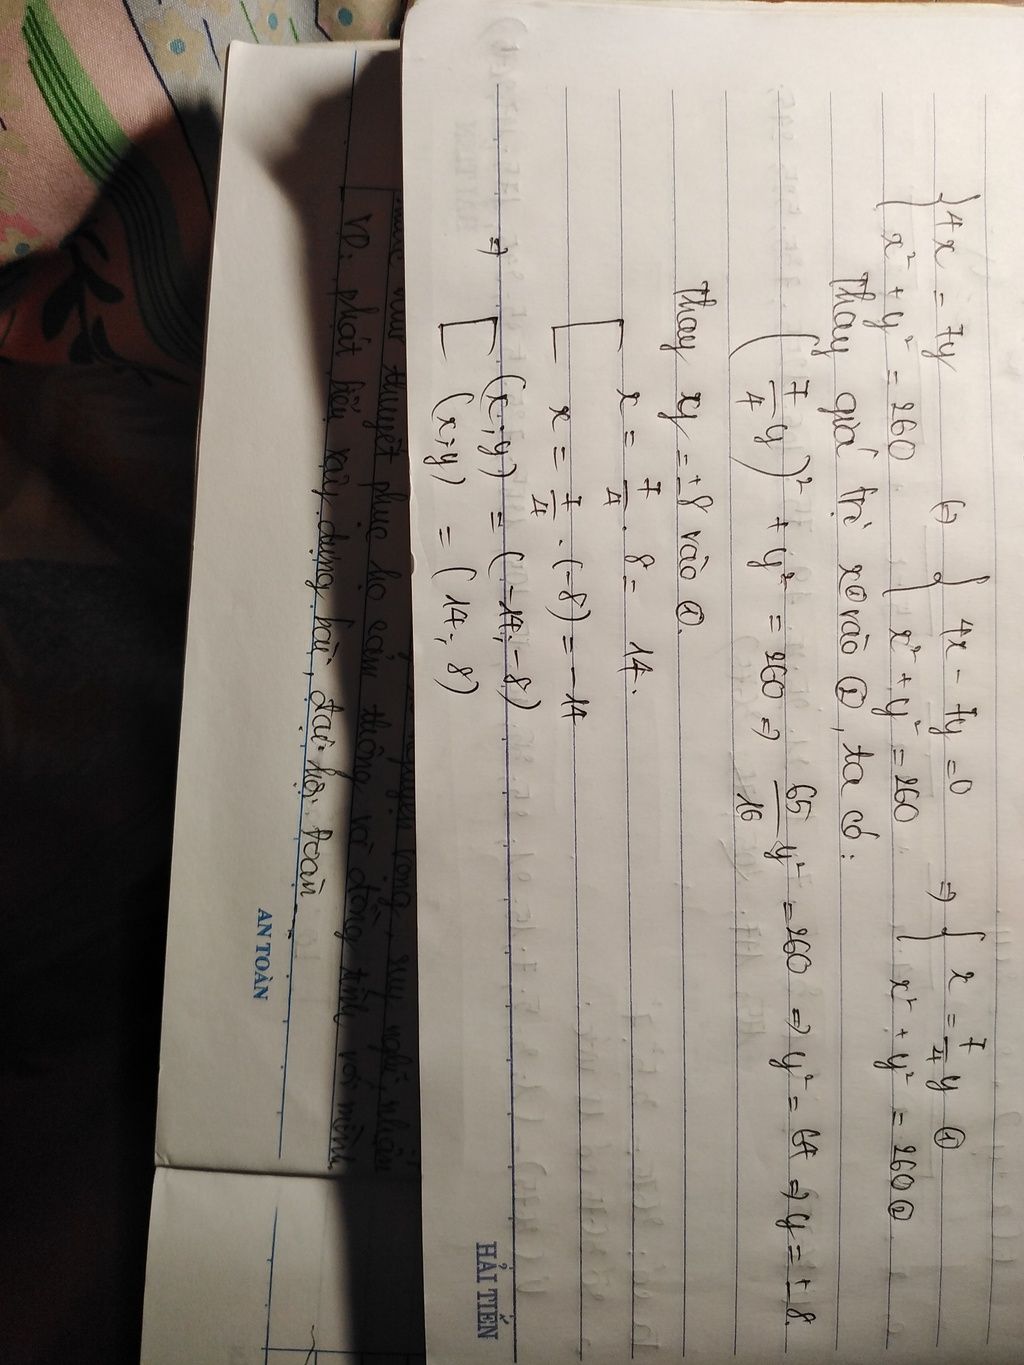 {4x = 7y (=) { 4x - 7y = 0 => { x = 7/4 y ①
{x² + y² = 260 { x² + y² = 260 { x² + y² = 260 ②
Thay giá trị x ① vào ②, ta có:
(7/4 y)² + y² = 260 => 65/16 y² = 260 => y² = 64 => y = ± 8.
Thay y = ±8 vào ①.
[ x = 7/4 . 8 = 14.
[ x = 7/4 . (-8) = -14
=> [ (x; y) = (-14; -8)
[ (x; y) = (14; 8)
HẢI TIẾN
thuyết phục họ cảm thông và đồng tình với mình
VD: phát biểu xây dựng bài, đại hội Đoàn
AN TOÀN